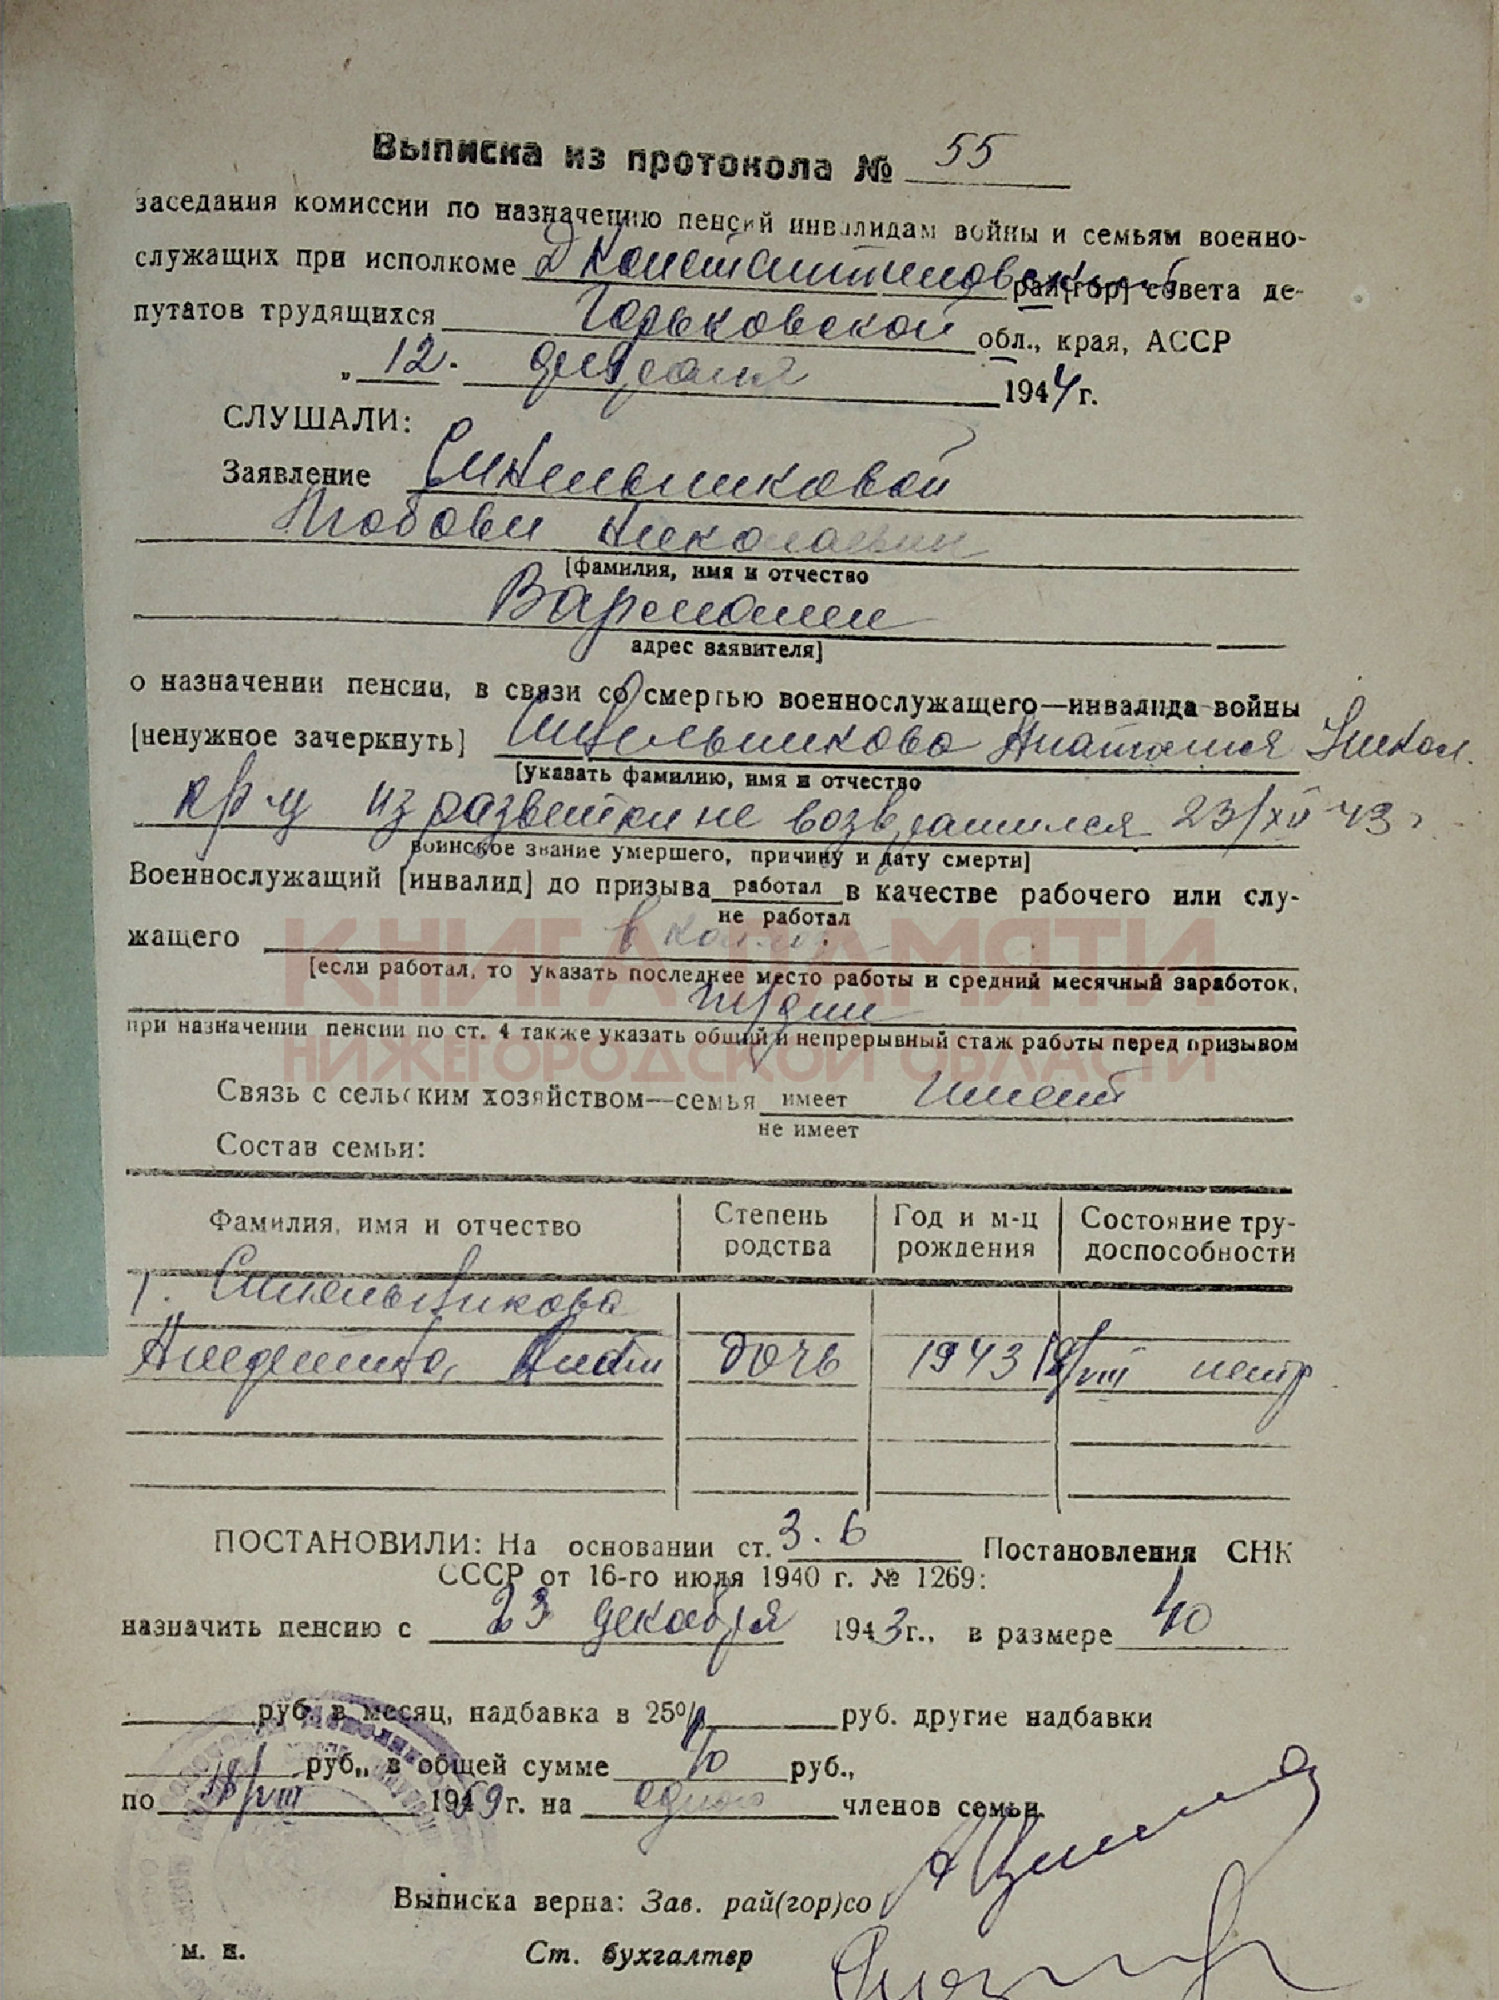 Выписка из протокола № 55
заседания комиссии по назначению пенсий инвалидам войны и семьям военно-
служащих при исполкоме Д Константиновский рай[гор] совета де-
путатов трудящихся Горьковской обл., края, АССР
„ 12. февраля 1944 г.
СЛУШАЛИ:
Заявление Синельщиковой
Любови Николаевны
[фамилия, имя и отчество
Варемали
адрес заявителя]
о назначении пенсии, в связи со смертью военнослужащего—инвалида войны
[ненужное зачеркнуть] Анатолия Никол.
[указать фамилию, имя и отчество
кр-ц из разведки не возвратился 23/XII 43 г
воинское звание умершего, причину и дату смерти]
Военнослужащий [инвалид] до призыва работал в качестве рабочего или слу-
не работал
жащего в колх.
[если работал, то указать последнее место работы и средний месячный заработок,
тр/дни
при назначении пенсии по ст. 4 также указать общий и непрерывный стаж работы перед призывом
КНИГА ПАМЯТИ
НИЖЕГОРОДСКОЙ ОБЛАСТИ
Связь с сельским хозяйством—семья имеет имеет
не имеет
Состав семьи:
Фамилия, имя и отчество Степень родства Год и м-ц рождения Состояние тру-доспособности
1. Синельщикова
дочь 1943 18/VIII нетр
ПОСТАНОВИЛИ: На основании ст. 3.6 Постановления СНК
СССР от 16-го июля 1940 г. № 1269:
назначить пенсию с 23 декабря 1943 г., в размере 40
руб. в месяц, надбавка в 25% руб. другие надбавки
руб., в общей сумме 40 руб.,
по 18/VIII 1959 г. на одного членов семьи.
Выписка верна: Зав. рай(гор)со
м. п. Ст. бухгалтер